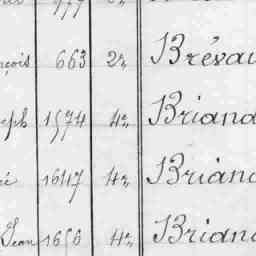 nçois 663 2e Brévau
eph 1574 4e Briand
é 1647 4e Briand
Jean 1656 4e Briand